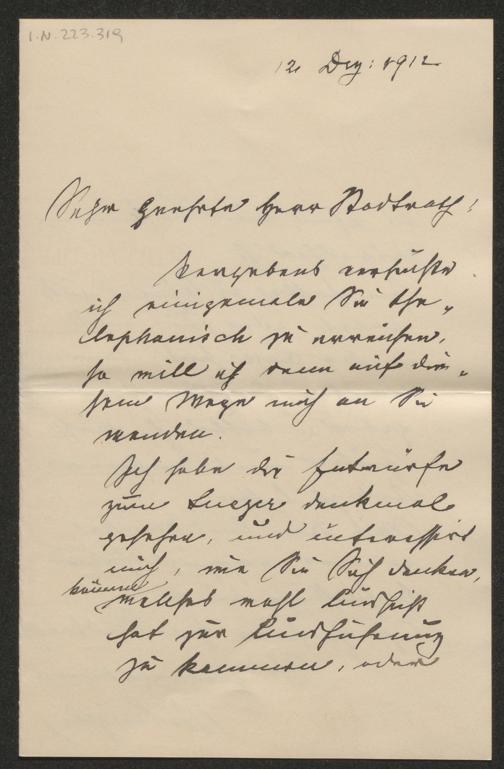 I.N. 223.319
12 Dez: 1912
Sehr geehrter Herr Stadtrath!
Vergebens versuchte
ich einigemale Sie the„
lephonisch zu erreichen,
so will ich denn auf die„
sem Wege mich an Sie
wenden.
Ich habe die Entwürfe
zum Lueger denkmal
gesehen, und interessirt
mich, wie Sie Sich denken
können
welches wohl Aussicht
hat zur Ausführung
zu kommen, oder